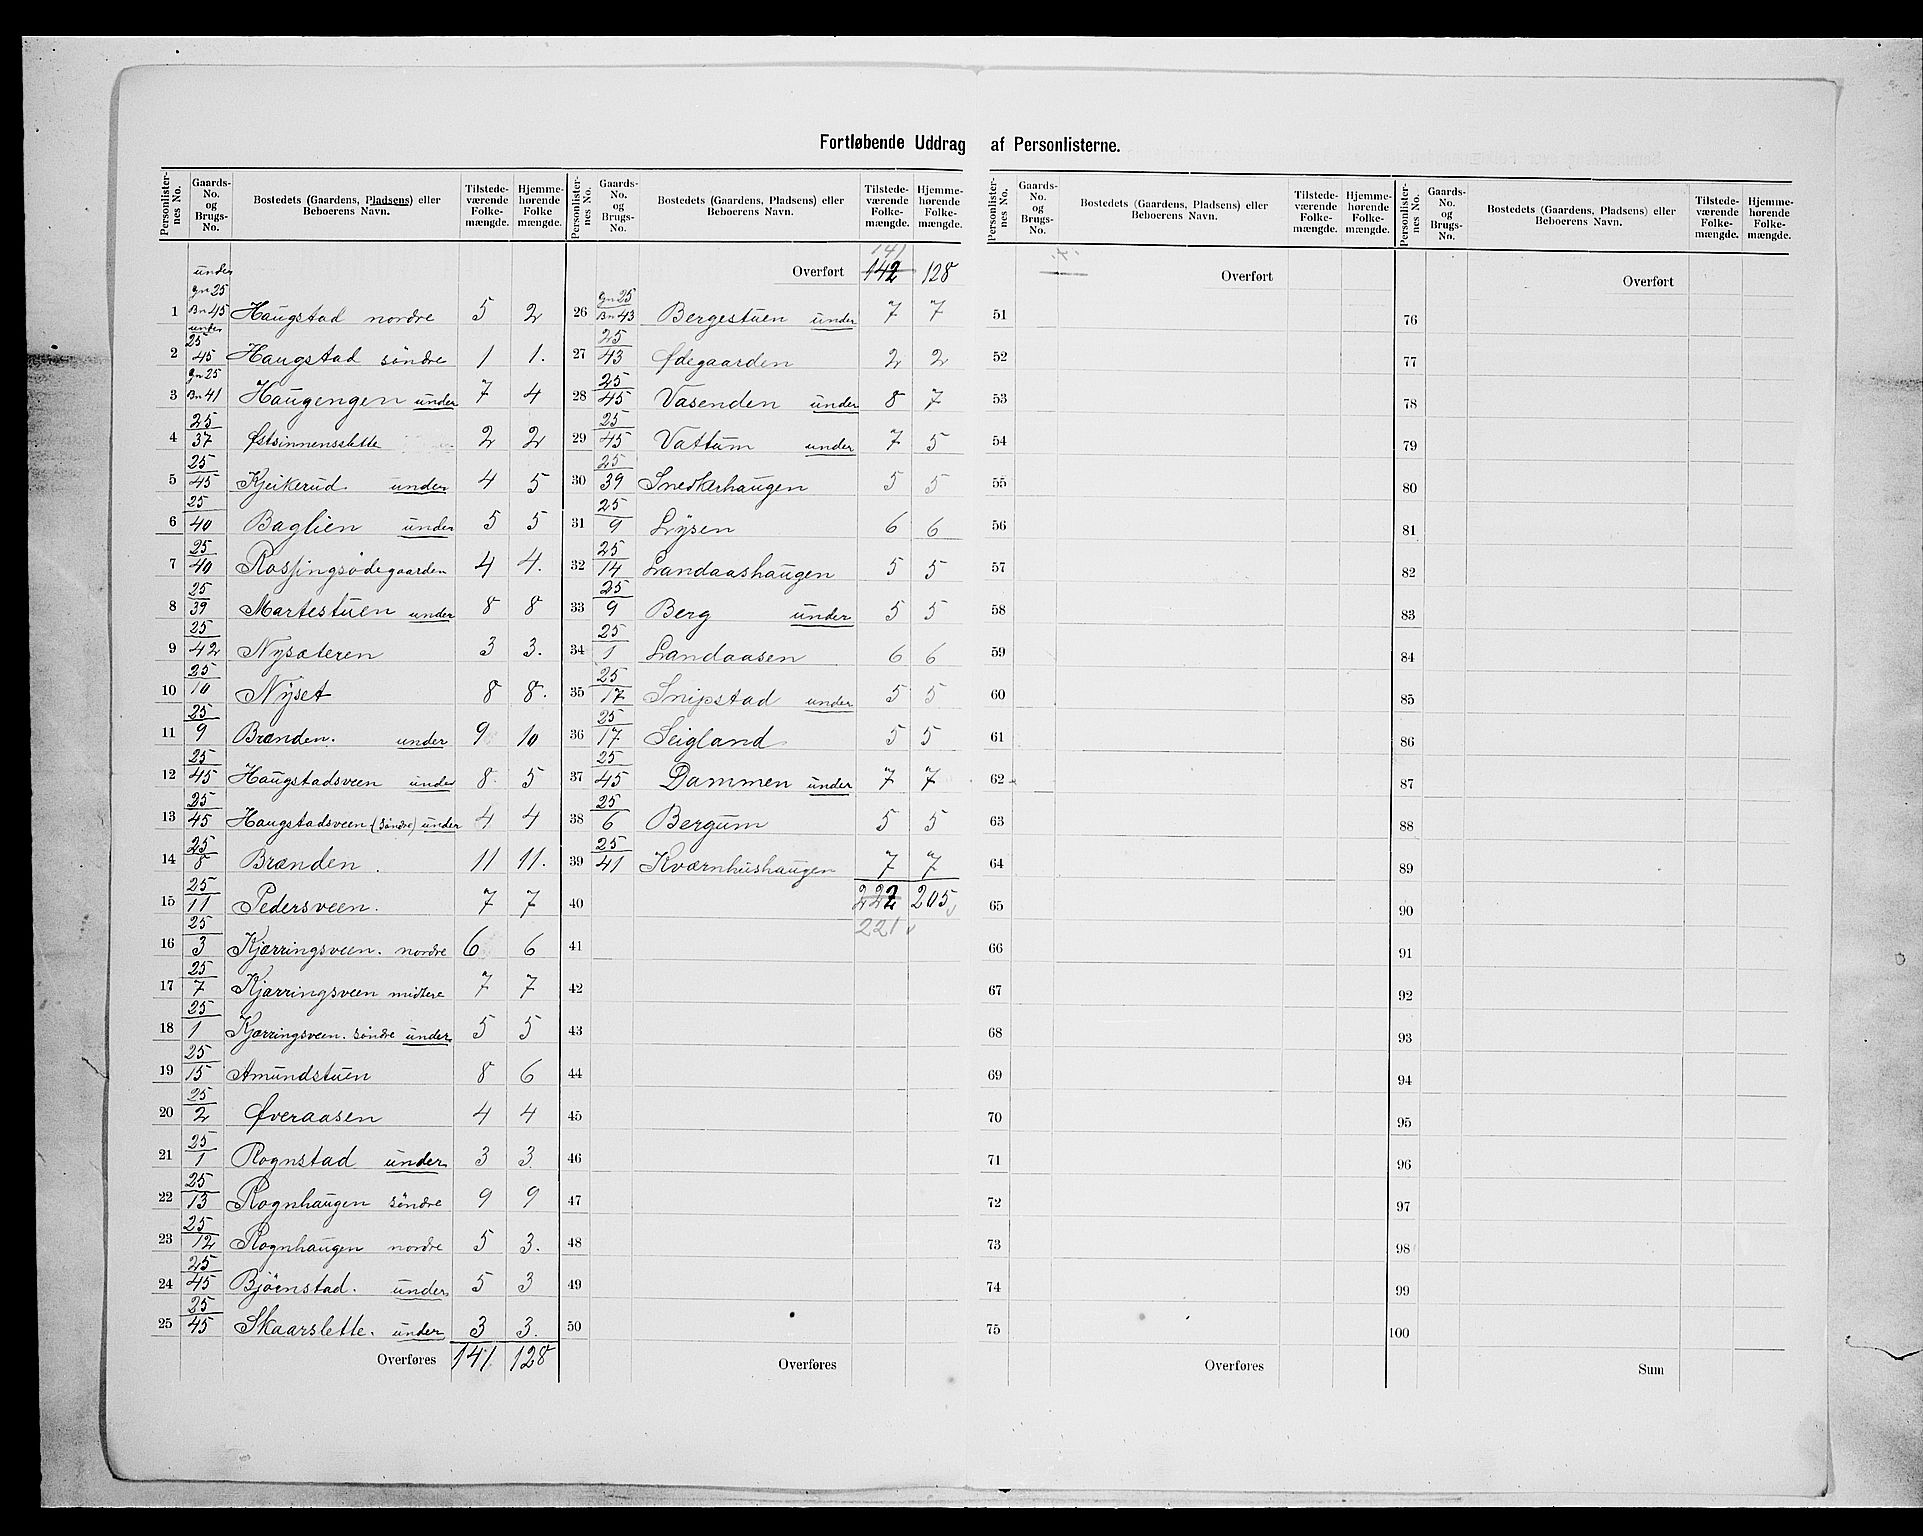 Fortløbende Uddrag af Personlisterne.
Personlister-nes No. | Gaards-No. og Brugs-No. | Bostedets (Gaardens, Pladsens) eller Beboerens Navn. | Tilstede-værende Folke-mængde. | Hjemme-hørende Folke mængde.
1 | under Gn 25 Bn 45 | Haugstad nordre | 5 | 2
2 | under 25/45 | Haugstad söndre | 1 | 1.
3 | Gn 25 Bn 41 | Haugengen under | 7 | 4
4 | 25/37 | Østsinnensslette | 2 | 2
5 | 25/45 | Kjeikerud under | 4 | 5
6 | 25/40 | Baglien under | 5 | 5
7 | 25/40 | Rossingsødegaarden | 4 | 4.
8 | 25/39 | Martestuen under | 8 | 8
9 | 25/42 | Nysæteren | 3 | 3.
10 | 25/10 | Nyset | 8 | 8.
11 | 25/9 | Brænden. under | 9 | 10
12 | 25/45 | Haugstadsveen under | 8 | 5
13 | 25/45 | Haugstadsveen (söndre) under | 4 | 4
14 | 25/8 | Brænden. | 11 | 11.
15 | 25/11 | Pedersveen. | 7 | 7
16 | 25/3 | Kjærringsveen. nordre | 6 | 6
17 | 25/7 | Kjærringsveen midtere | 7 | 7
18 | 25/1 | Kjærringsveen. söndre under | 5 | 5
19 | 25/15 | Amundstuen | 8 | 6
20 | 25/2 | Øveraasen | 4 | 4
21 | 25/1 | Rognstad under | 3 | 3
22 | 25/13 | Rognhaugen söndre | 9 | 9
23 | 25/12 | Rognhaugen nordre | 5 | 3.
24 | 25/45 | Bjöenstad. under | 5 | 3
25 | 25/45 | Skaarslette. under | 3 | 3.
Overføres | 141 | 128
Personlister-nes No. | Gaards-No. og Brugs-No. | Bostedets (Gaardens, Pladsens) eller Beboerens Navn. | Tilstede-værende Folke-mængde. | Hjemme-hørende Folke-mængde.
141
Overført | 142 | 128
26 | Gn 25 Bn 43 | Bergestuen under | 7 | 7
27 | 25/43 | Ødegaarden | 2 | 2
28 | 25/45 | Vasenden under | 8 | 7
29 | 25/45 | Vattum under | 7 | 5
30 | 25/39 | Snedkerhaugen | 5 | 5
31 | 25/9 | Lysen | 6 | 6
32 | 25/14 | Landaashaugen | 5 | 5
33 | 25/9 | Berg under | 5 | 5
34 | 25/1 | Landaasen | 6 | 6
35 | 25/17 | Snipstad under | 5 | 5
36 | 25/17 | Seigland | 5 | 5
37 | 25/45 | Dammen under | 7 | 7
38 | 25/6 | Bergum | 5 | 5
39 | 25/41 | Kværnhushaugen | 7 | 7
40 | 222 | 205
221
41
42
43
44
45
46
47
48
49
50
Overføres
Personlister-nes No. | Gaards-No. og Brugs-No. | Bostedets (Gaardens, Pladsens) eller Beboerens Navn. | Tilstede-værende Folke-mængde. | Hjemme-hørende Folke-mængde.
Overført
51
52
53
54
55
56
57
58
59
60
61
62
63
64
65
66
67
68
69
70
71
72
73
74
75
Overføres
Personlister-nes No. | Gaards-No. og Brugs-No. | Bostedets (Gaardens, Pladsens) eller Beboerens Navn. | Tilstede-værende Folke-mængde. | Hjemme-hørende Folke-mængde.
Overført
76
77
78
79
80
81
82
83
84
85
86
87
88
89
90
91
92
93
94
95
96
97
98
99
100
Sum